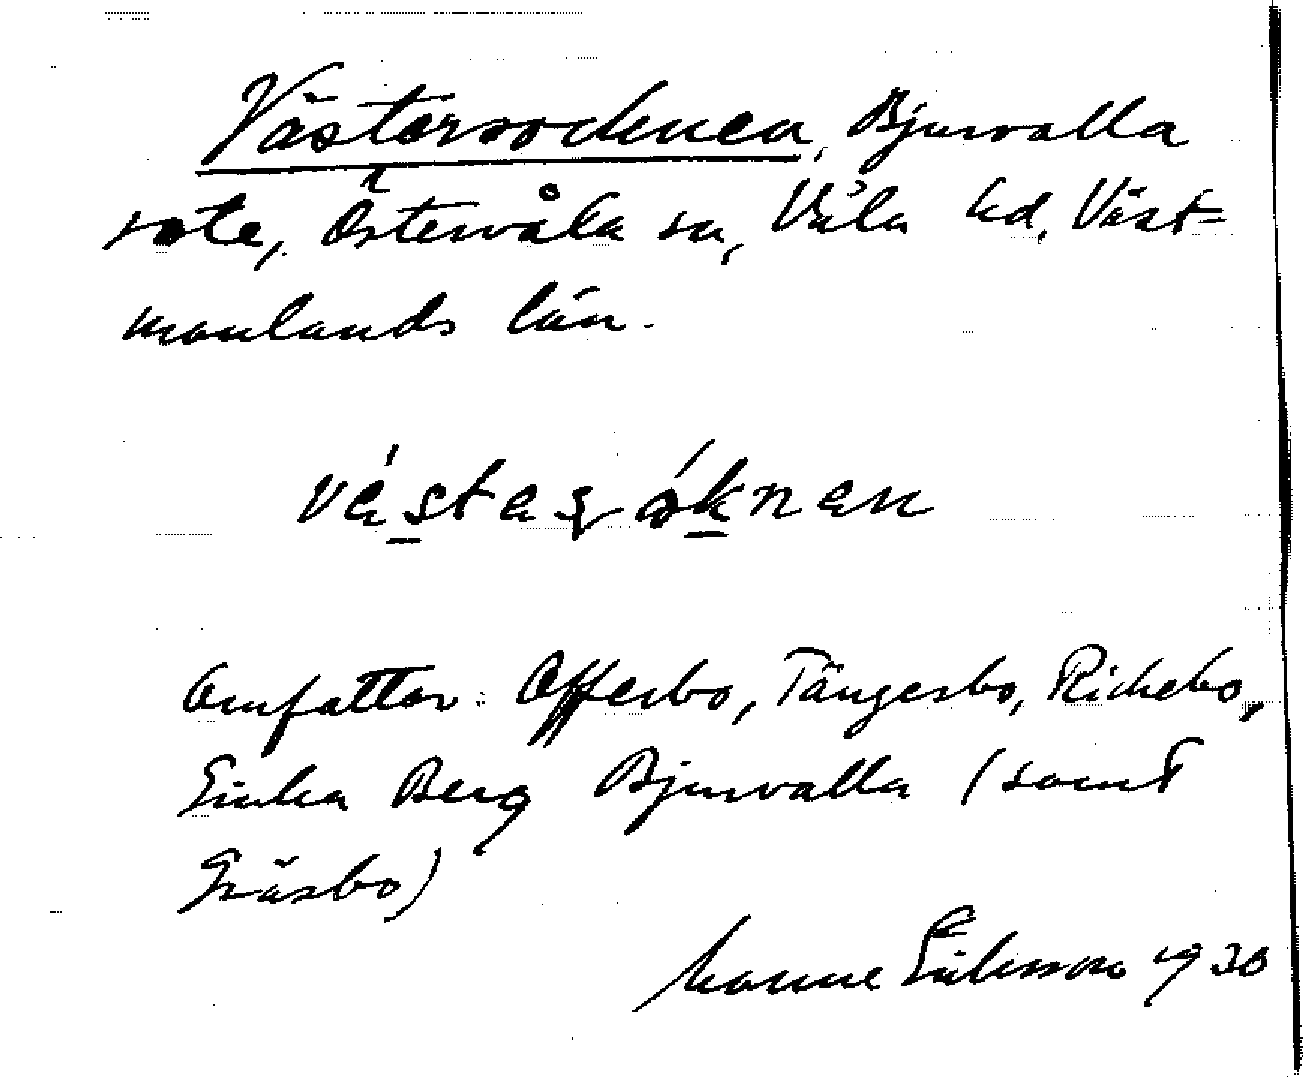 Västersocknen, Bjurvalla
rote, Östervåla sn, Våla hd, Väst-
manlands län.
Omfattar: Offerbo, Tängesbo, Rickebo,
Berg Bjurvalla (samt
Gräsbo)
Manne Eriksson 1930